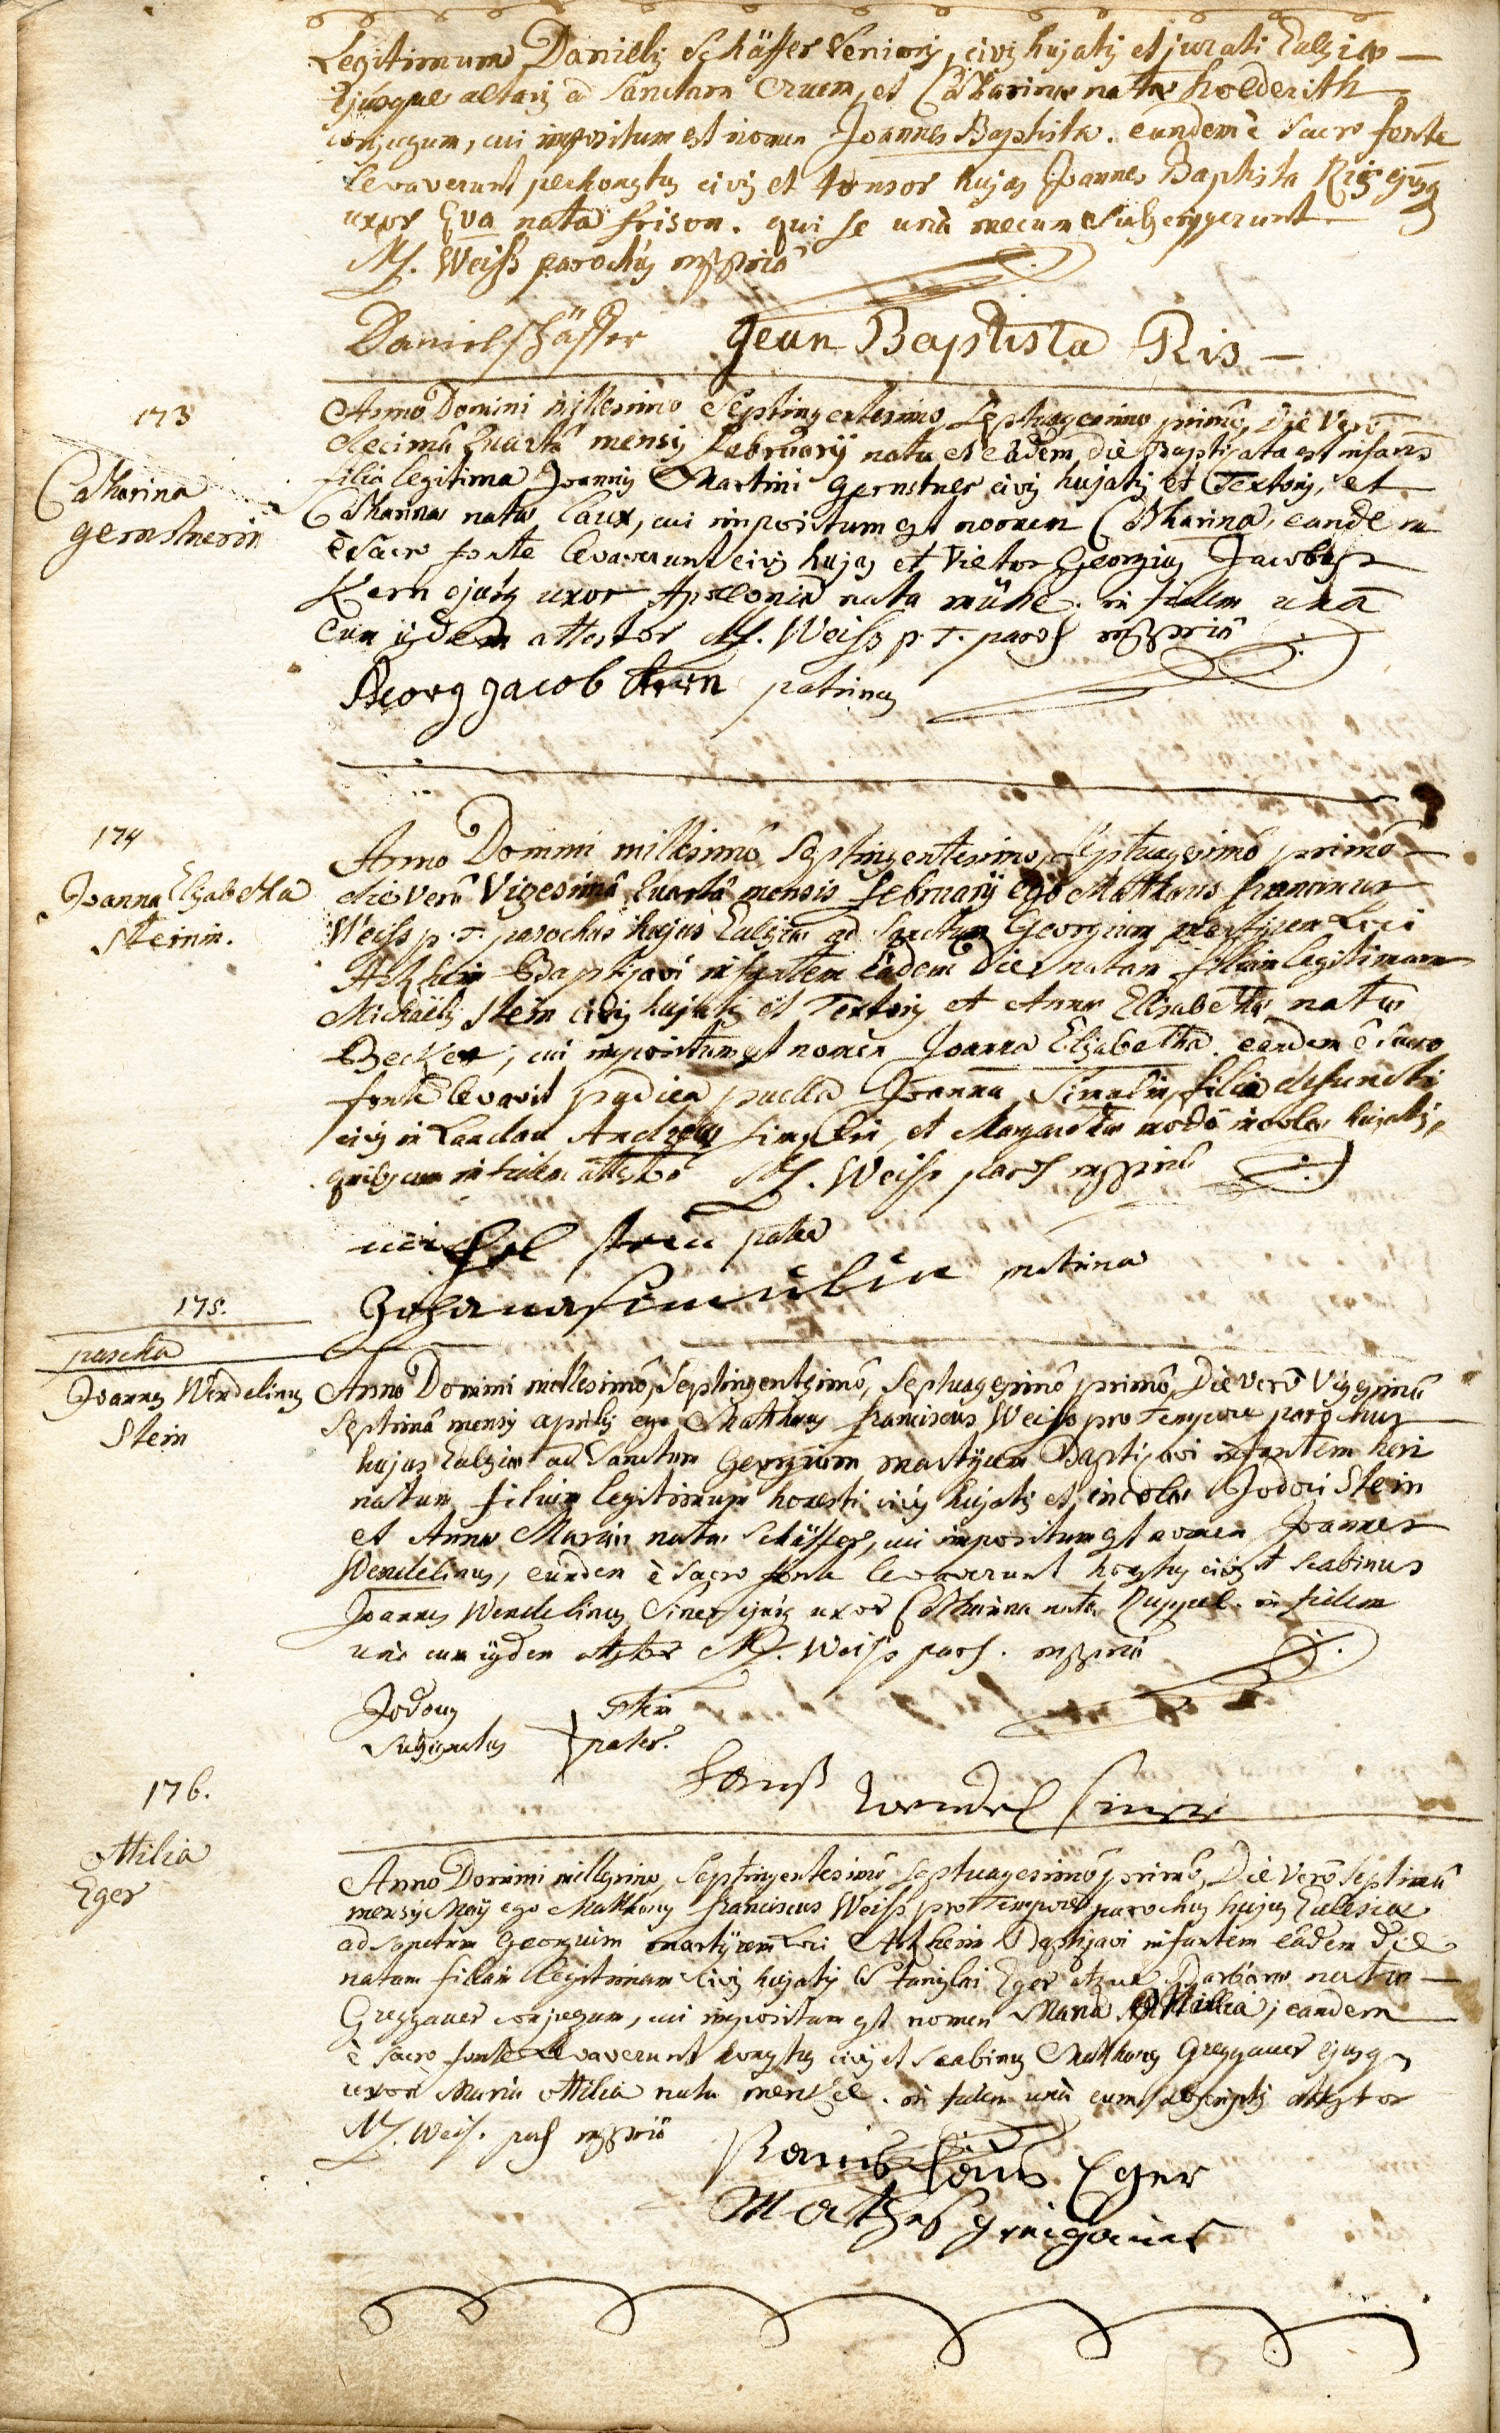 Legitimum Danielis Schäffer Senioris, civis hujatis et jurati Ecclesiae
ejusque altaris ad Sanctam Crucem, et Catharinae natae hoederith
conjugum, cui impositum est nomen Joannes Baptista. eundem è Sacro fonte
levaverunt perhonestus civis et tonsor hujas Joannes Baptista Ris ejusq
uxor Eva nata frison. qui se unà mecum subscripserunt
M. Weiss parochus mppria
Daniel schäffer Jean Baptista Ris
173
Catharina
gernstnerin
Anno Domini millesimo Septingentesimo Septuagesimo primô, Die Verô
decimâ quartâ mensis februarij nata et eâdem die Baptisata est infans
filia legitima Joannis Martini gernstner civis hujatis et Textoris, et
Catharinae natae Laux, cui impositum est nomen Catharina, eandem
è sacro fonte levaverunt civis hujas et Vietor Georgius Jacobus
Kern ejusq uxor Apolonia nata mühe. in fidem unâ
cum ijsdem attestor M. Weiss p. T. paroch mppriâ
Georg Jacob Kern patrinus
174
Joanna Elisabetha
Steinin.
Anno Domini millesimô Septingentesimo, Septuagesimô primô
die verô Vigesimâ quartâ mensis februarij ego Matthaeus franciscus
Weiss p. T. parochus hujus Ecclesiae ad Sanctum Georgium martijrem Loci
Artzheim Baptisavi infantem eâdem die natam filiam legitimam
Michaëlis Stein civis hujatis et Textoris et Annae Elisabethae natae
Becker, cui impositum est nomen Joanna Elisabetha. eandem è sacro
fonte levavit pudica puella Joanna filia defuncti
civis in Landau Andreae et Margarethae modô incolae hujatis,
quibuscum in fidem attestor M. Weiss paroch mppria
michel stein pater
matrina
175.
pascha
Joannes Wendelinus
Stein
Anno Domini millesimô, Septingentesimô, Septuagesimô primô, Die verô Vigesimâ
Septimâ mensis aprilis ego Matthaeus franciscus Weiss pro Tempore parochus
hujus Ecclesiae ad Sanctum Georgium martijrem Baptisavi infantem heri
natum filium legitimum honesti civis hujatis et incolae Jodoci Stein
et Annae Mariae natae Schäffer, cui impositum est nomen Joannes
Wendelinus, eundem è Sacro fonte levaverunt honestus civis et scabinus
Joannes Wendelinus Siner ejusq uxor Catharina nata Ruppel. in fidem
unà cum ijsdem attestor M. Weiss paroch. mppria
Jodocus Stein
subsignatus pater.
Hanß wendel siner
176.
ottilia
Eger
Anno Domini millesimo, Septingentesimô Septuagesimô primô, Die Verô Septimâ
mensis Maij ego Matthaeus franciscus Weiss pro Tempore parochus hujus Ecclesiae
ad Sanctum Georgium martijrem Loci Artzheim Baptisavi infantem eâdem die
natam filiam legitimam civis hujatis Stanislai Eger atque Barbarae natae
Greggauer conjugum, cui impositum est nomen Maria ottilia; eandem
è sacro fonte levaverunt honestus civis et scabinus Matthaeus Greggauer ejusq
uxor Maria ottilia nata menkel. in fidem unà cum subscriptis attestor
M. Weis. paroch mppria
Stanislaus Eger
Mathes greigauer